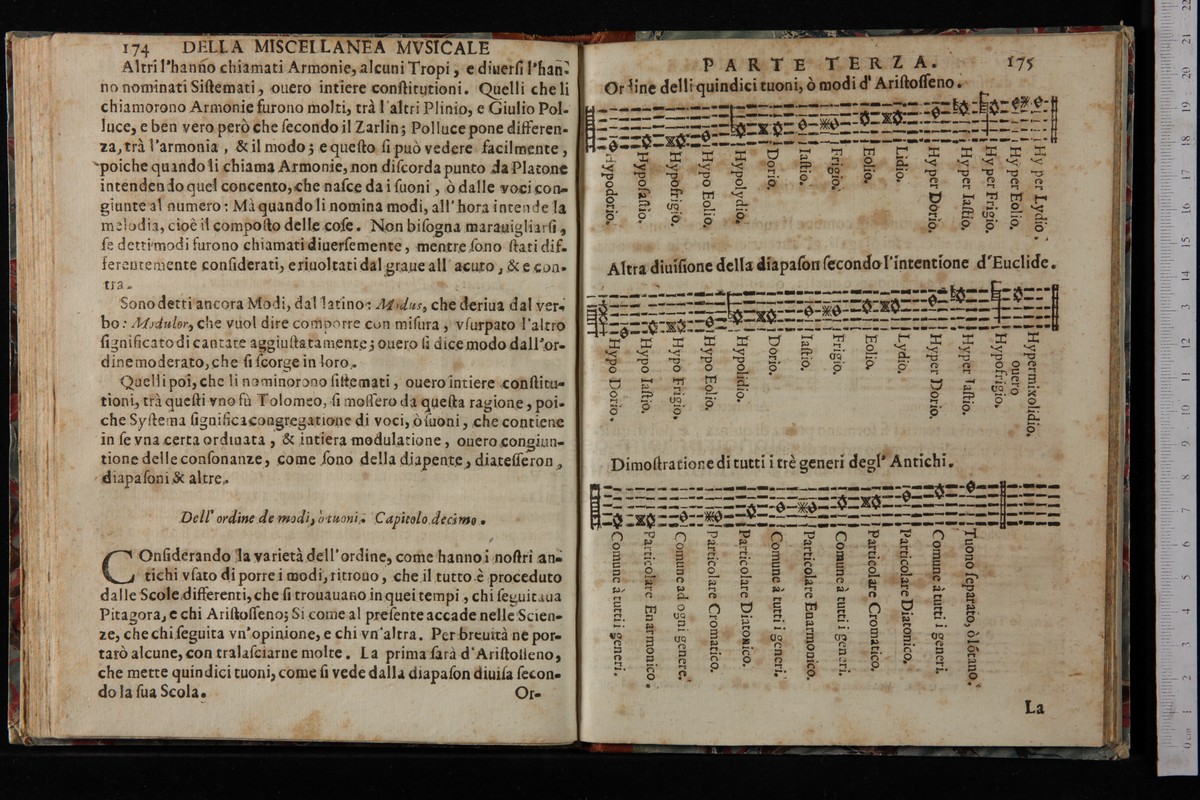 174 DELLA MISCELLANEA MVSICALE
Altri l'hanno chiamati Armonie, alcuni Tropi, e diuerſi l'han-
no nominati Siſtemati, ouero intiere conſtitutioni. Quelli che li
chiamorono Armonie furono molti, trà l'altri Plinio, e Giulio Pol-
luce, e ben vero però che ſecondo il Zarlin; Polluce pone differen-
za, trà l'armonia, & il modo; e queſto ſi può vedere facilmente,
poiche quando li chiama Armonie, non diſcorda punto da Platone
intendendo quel concento, che naſce da i ſuoni, ò dalle voci con-
giunte al numero: Mà quando li nomina modi, all'hora intende la
melodia, cioè il compoſto delle coſe. Non biſogna marauigliarſi,
ſe detti modi furono chiamati diuerſemente, mentre ſono ſtati dif-
ferentemente conſiderati, e riuoltati dal graue all' acuto, & e con-
tra.
Sono detti ancora Modi, dal latino: Modus, che deriua dal ver-
bo: Modulor, che vuol dire comporre con miſura, vſurpato l'altro
ſignificato di cantare aggiuſtatamente; ouero ſi dice modo dall'or-
dine moderato, che ſi ſcorge in loro.
Quelli poi, che li nominorono ſiſtemati, ouero intiere conſtitu-
tioni, trà queſti vno fù Tolomeo, ſi moſſero da queſta ragione, poi-
che Syſtema ſignifica congregatione di voci, ò ſuoni, che contiene
in ſe vna certa ordinata, & intiera modulatione, ouero congiun-
tione delle conſonanze, come ſono della diapente, diateſſeron,
diapaſoni & altre.
Dell' ordine de modi, ò tuoni. Capitolo decimo.
COnſiderando la varietà dell'ordine, come hanno i noſtri an-
tichi vſato di porre i modi, ritrouo, che il tutto è proceduto
dalle Scole differenti, che ſi trouauano in quei tempi, chi ſeguitaua
Pitagora, e chi Ariſtoſſeno; Si come al preſente accade nelle Scien-
ze, che chi ſeguita vn'opinione, e chi vn'altra. Per breuità ne por-
tarò alcune, con tralaſciarne molte. La prima ſarà d'Ariſtoſſeno,
che mette quindici tuoni, come ſi vede dalla diapaſon diuiſa ſecon-
do la ſua Scola. Or-
PARTE TERZA. 175
Ordine delli quindici tuoni, ò modi d' Ariſtoſſeno.
Hypodorio.
Hypoiaſtio.
Hypofrigio.
Hypo Eolio.
Hypolydio.
Dorio.
Iaſtio.
Frigio.
Eolio.
Lidio.
Hyper Dorio.
Hyper Iaſtio.
Hyper Frigio.
Hyper Eolio.
Hyper Lydio.
Altra diuiſione della diapaſon ſecondo l'intentione d'Euclide.
Hypo Dorio.
Hypo Iaſtio.
Hypo Frigio.
Hypo Eolio.
Hypolidio.
Dorio.
Iaſtio.
Frigio.
Eolio.
Lydio.
Hyper Dorio.
Hyper Iaſtio.
Hypofrigio.
ouero
Hypermixolidio.
Dimoſtratione di tutti i trè generi degl' Antichi.
Comune à tutti i generi.
Particolare Enarmonico.
Comune ad ogni genere.
Particolare Cromatico.
Particolare Diatonico.
Comune à tutti i generi.
Particolare Enarmonico.
Comune à tutti i generi.
Particolare Cromatico.
Particolare Diatonico.
Comune à tutti i generi.
Tuono ſeparato, ò lótano.
La